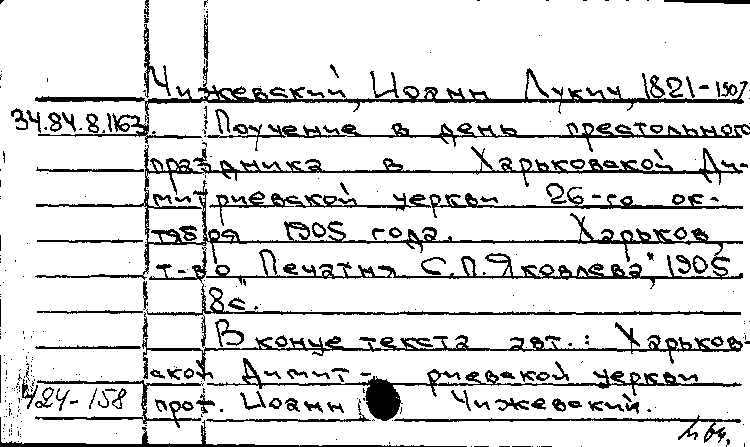 Чижевский, Иоанн Лукич, 1821-1907
34.84.8.1163. Поучение в день престольного
праздника в Харьковской Ди-
митриевской церкви 26-го ок-
тября 1905 года. Харьков,
т-во "Печатня С.П.Яковлева", 1905.
8с.
В конце текста авт.: Харьков-
ской Димит- риевской церкви
424-158 прот. Иоанн Чижевский.